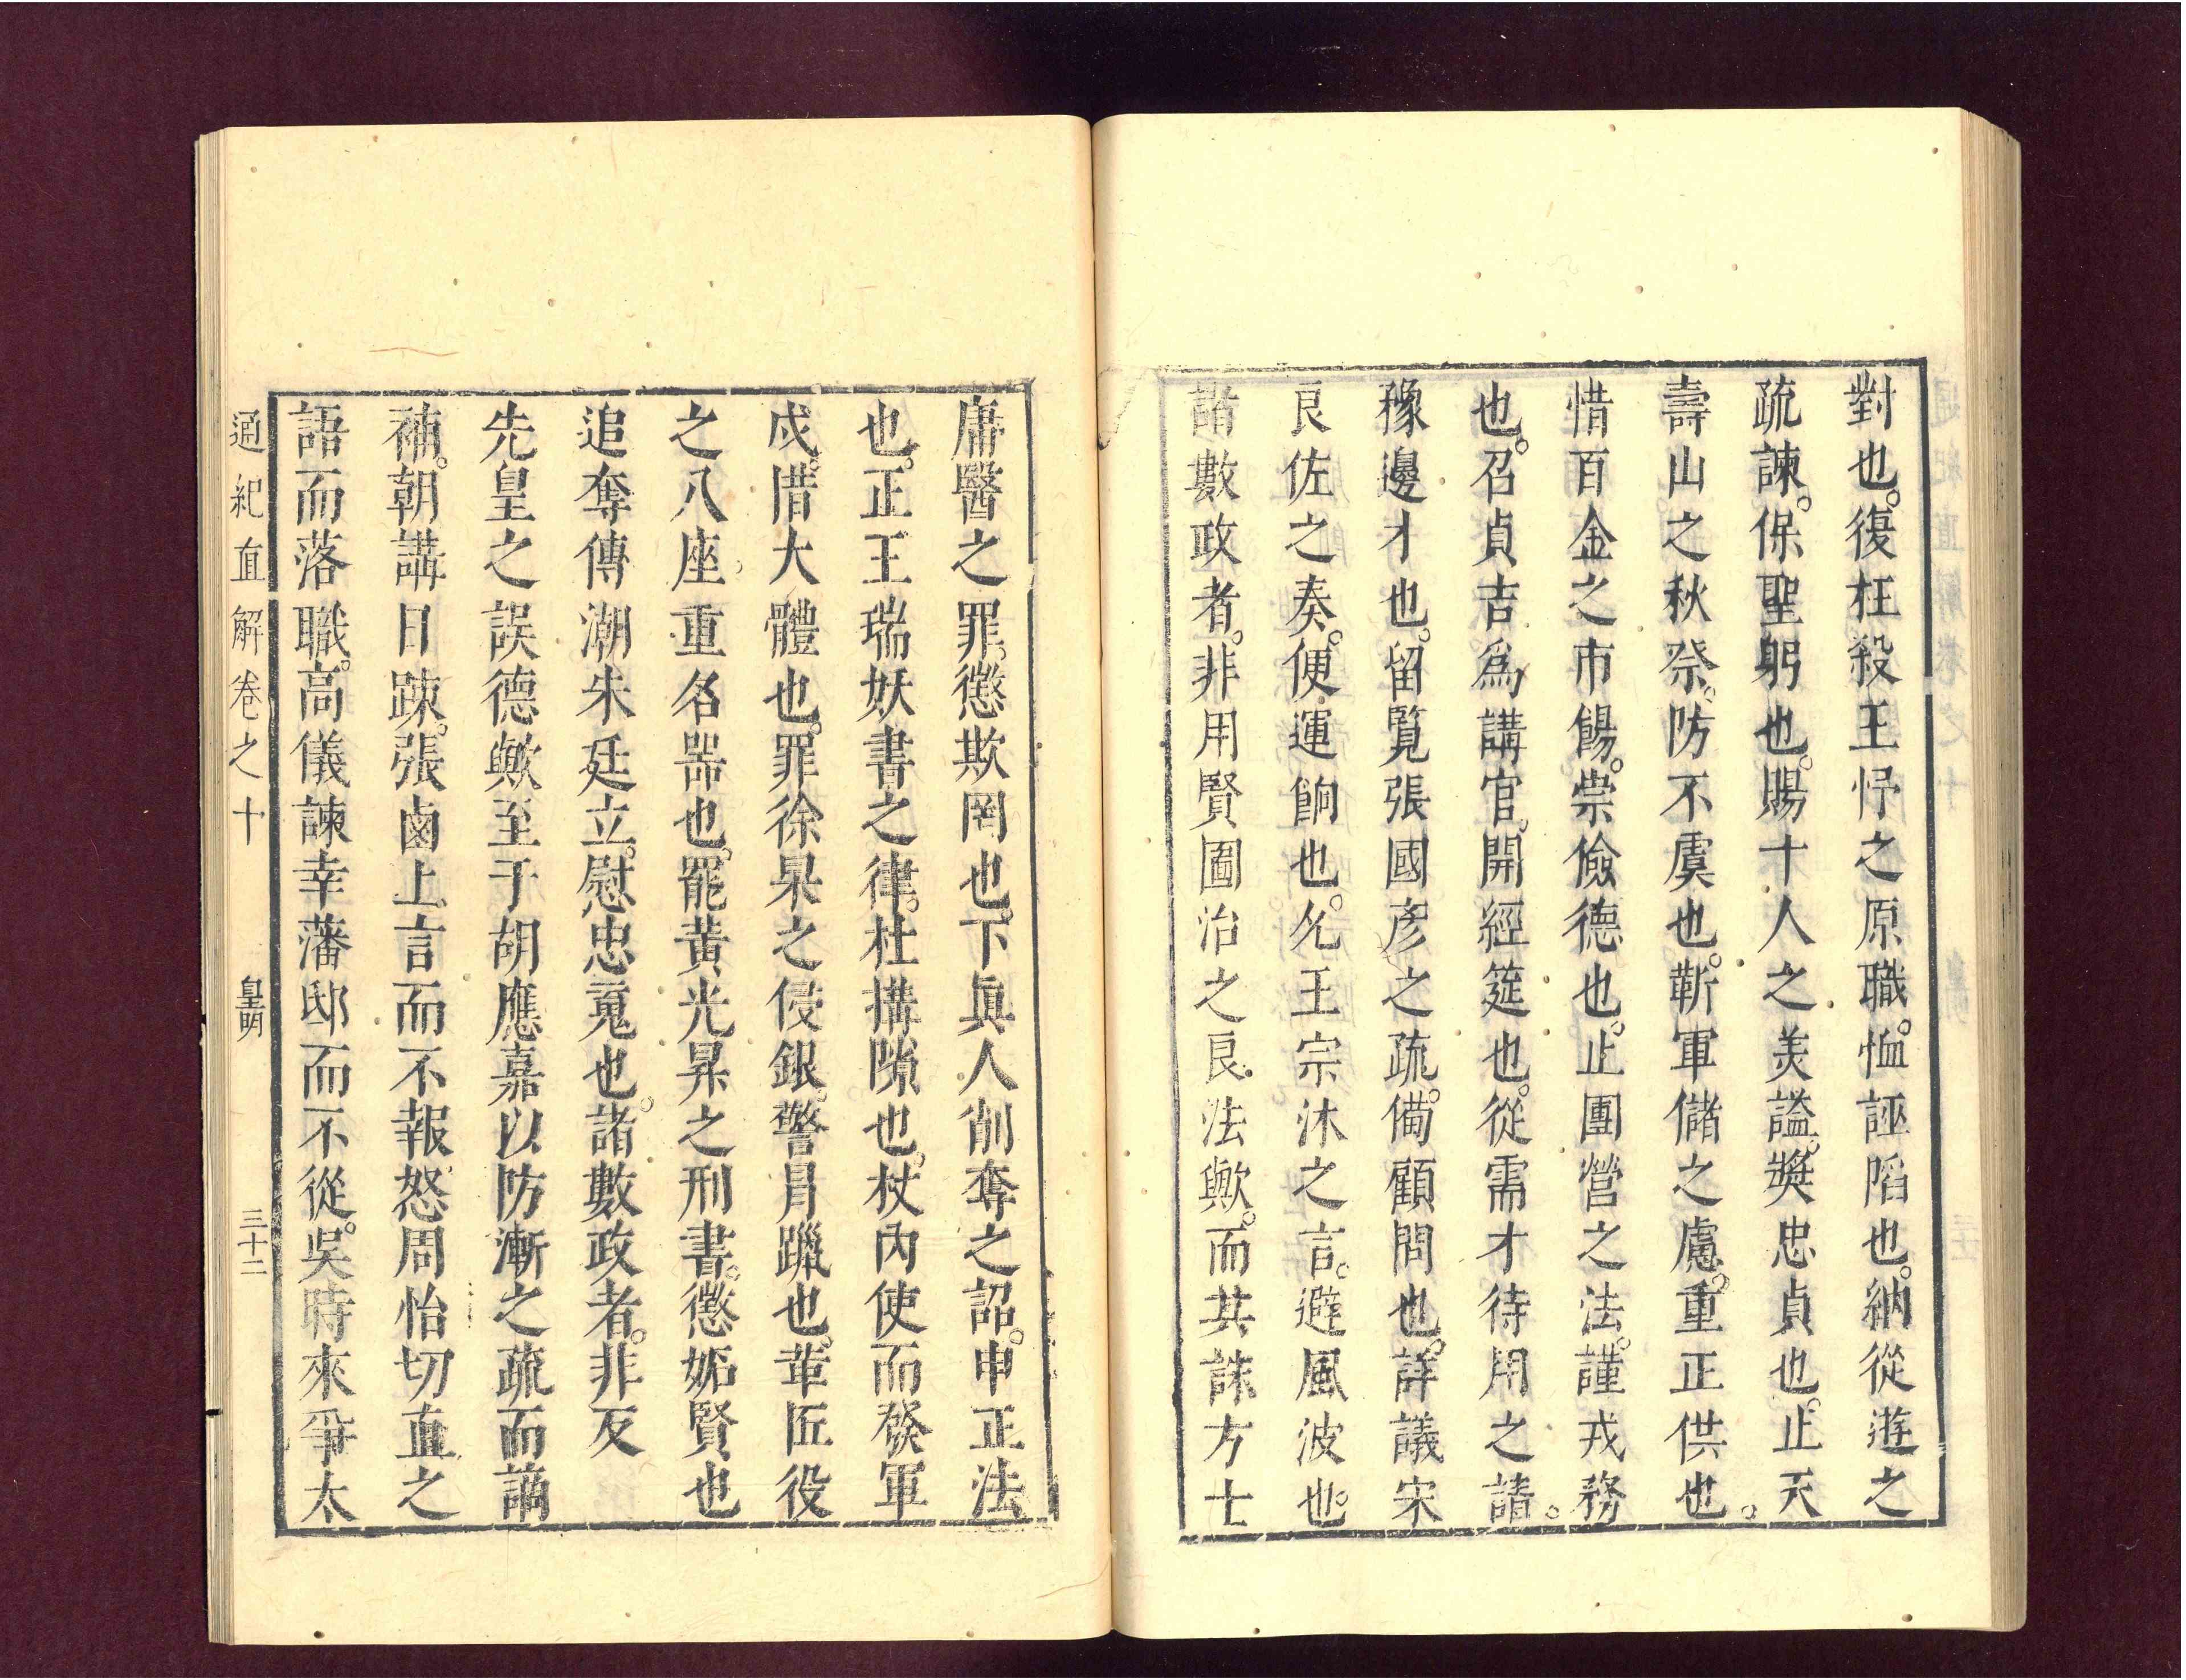 對也。復枉殺王忬之原職。恤誣陷也。納從遊之
疏諫。保聖躬也。賜十人之美謚。奬忠貞也。止天
壽山之秋祭。防不虞也。蘄軍儲之慮。重正供也。
惜百金之市餳。崇儉德也。止團營之法。謹戎務
也。召貞吉爲講官。開經筵也。從需才待用之請。
豫邊才也。留覽張國彦之疏。備顧問也。詳議宋
良佐之奏。便運餉也。允王宗沐之言。避風波也。
諸數政者。非用賢圖治之良法歟。而其誅方士
庸醫之罪。懲欺罔也。下眞人削奪之詔。申正法
也。正王瑞妖書之律。杜搆隙也。杖內使而發軍
戍。惜大體也。罪徐杲之侵銀。警冒躐也。革匠役
之八座。重名器也。罷黃光昇之刑書。懲妬賢也
追奪傳潮朱廷立。慰忠𩲸也。諸數政者。非反
先皇之誤德歟。至于胡應嘉以防漸之疏而謫
補。朝講日疎。張鹵上言而不報。怒周怡切直之
語而落職。高儀諫幸藩邸而不從。吳時來爭太
通紀直解卷之十 皇明 三十二